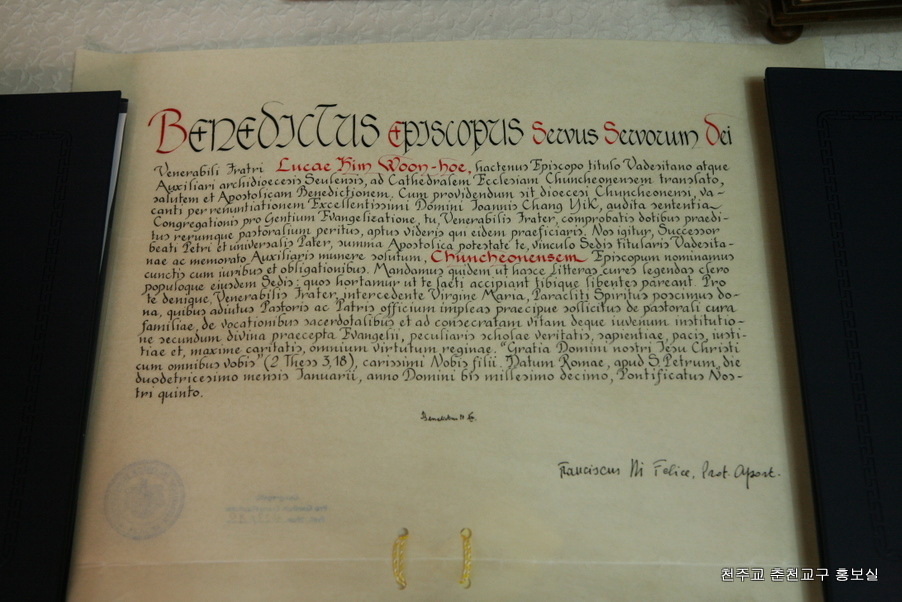 BENEDICTUS EPISCOPUS SERVUS SERVORUM DEI
Venerabili Fratri Lucae Kim Woon-hoe, hactenus Episcopo titulo Vadesitano atque
Auxiliari archidioecesis Seulensis, ad Cathedralem Ecclesiam Chuncheonensem translato,
salutem et Apostolicam Benedictionem. Cum providendum sit dioecesi Chuncheonensi, va-
canti per renuntiationem Excellentissimi Domini Ioannis Chang Yik, audita sententia
Congregationis pro Gentium Evangelizatione, tu, Venerabilis Frater, comprobatis dotibus praedi-
tus rerumque pastoralium peritus, aptus videris qui eidem praeficiaris. Nos igitur, Successor
beati Petri et universalis Pater, summa Apostolica potestate te, vinculo Sedis titularis Vadesita-
nae ac memorato Auxiliaris munere solutum, Chuncheonensem Episcopum nominamus
cunctis cum iuribus et obligationibus. Mandamus quidem ut hasce Litteras cures legendas clero
populoque eiusdem Sedis: quos hortamur ut te laeti accipiant tibique libentes pareant. Pro
te denique, Venerabilis Frater, intercedente Virgine Maria, Paracliti Spiritus poscimus do-
na, quibus adiutus Pastoris ac Patris officium impleas praecipue sollicitus de pastorali cura
familiae, de vocationibus sacerdotalibus et ad consecratam vitam deque iuvenum institutio-
ne secundum divina praecepta Evangelii, peculiaris scholae veritatis, sapientiae, pacis, iusti-
tiae et, maxime caritatis, omnium virtutum reginae. "Gratia Domini nostri Iesu Christi
cum omnibus vobis" (2 Thess 3,18), carissimi Nobis filii. Datum Romae, apud S. Petrum, die
duodetricesimo mensis Ianuarii, anno Domini bis millesimo decimo, Pontificatus Nos-
tri quinto.
Franciscus Di Felice, Prot. Apost.
천주교 춘천교구 홍보실